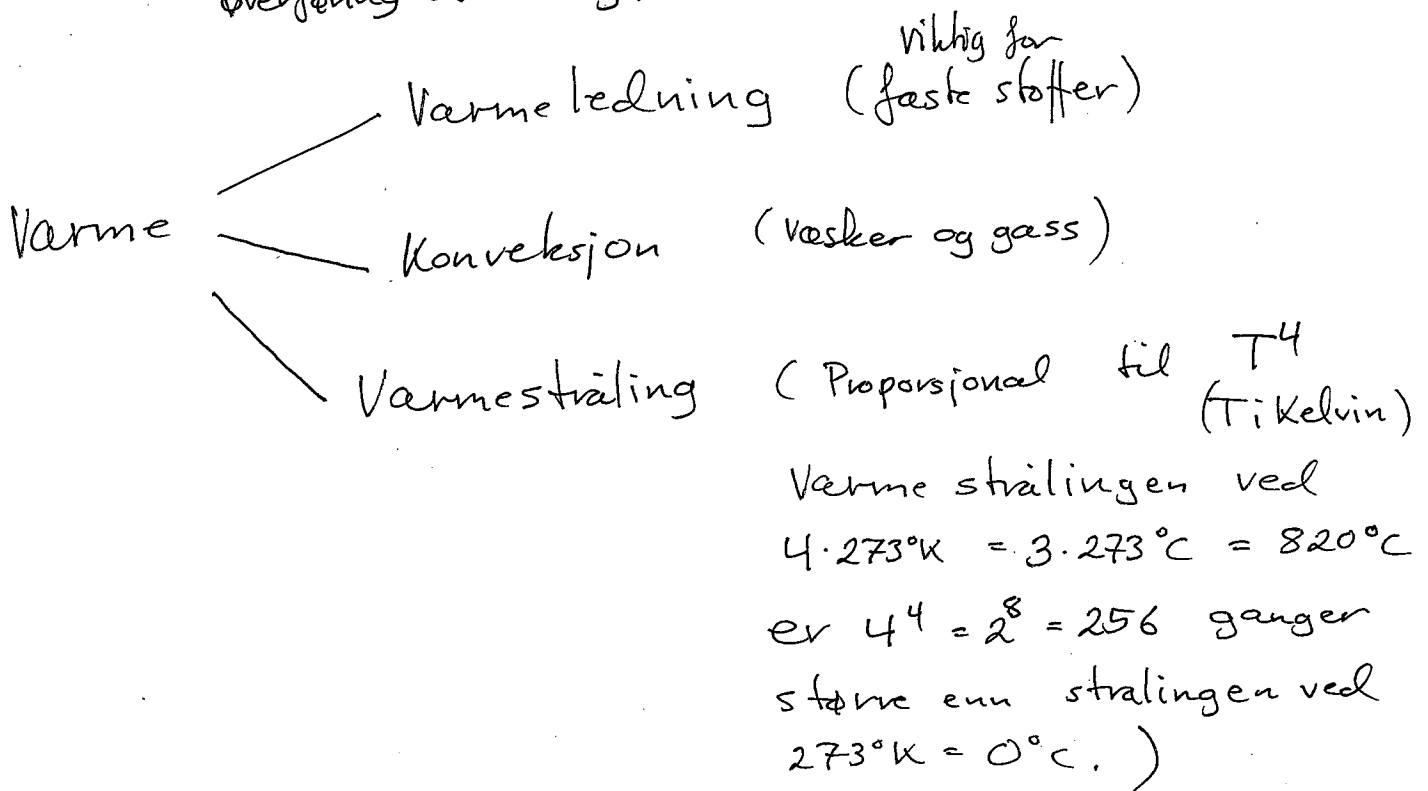 viktig for
Varmeledning (faste stoffer)
Varme
Konveksjon (væsker og gass)
Varmestråling (Proporsjonal til T⁴
(T i Kelvin)
Varme strålingen ved
4·273°K = 3·273°C = 820°C
er 4⁴ = 2⁸ = 256 ganger
større enn strålingen ved
273°K = 0°C. )